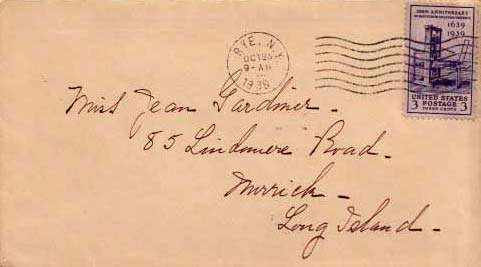 RYE, N.Y.
OCT 25
9-AM
1939
300TH ANNIVERSARY
1639
1939
UNITED STATES
3 POSTAGE 3
THREE CENTS
Miss Jean Gardiner-
85 Lindmere Road-
Merrick-
Long Island-